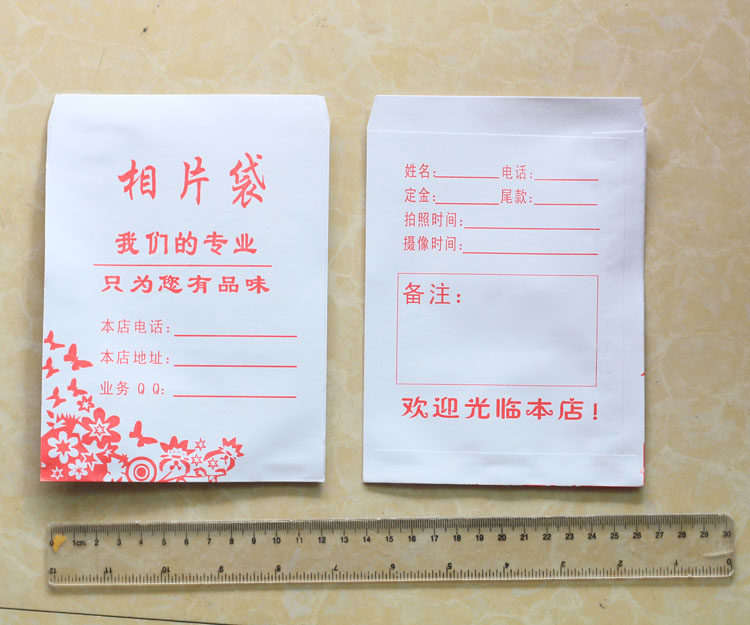 相片袋
我们的专业
只为您有品味
本店电话:
本店地址:
业务QQ:
姓名: 电话:
定金: 尾款:
拍照时间:
摄像时间:
备注:
欢迎光临本店!
0 1cm 2 3 4 5 6 7 8 9 10 11 12 13 14 15 16 17 18 19 20 21 22 23 24 25 26 27 28 29 30
12 11 10 9 8 7 6 5 4 3 2 1 0